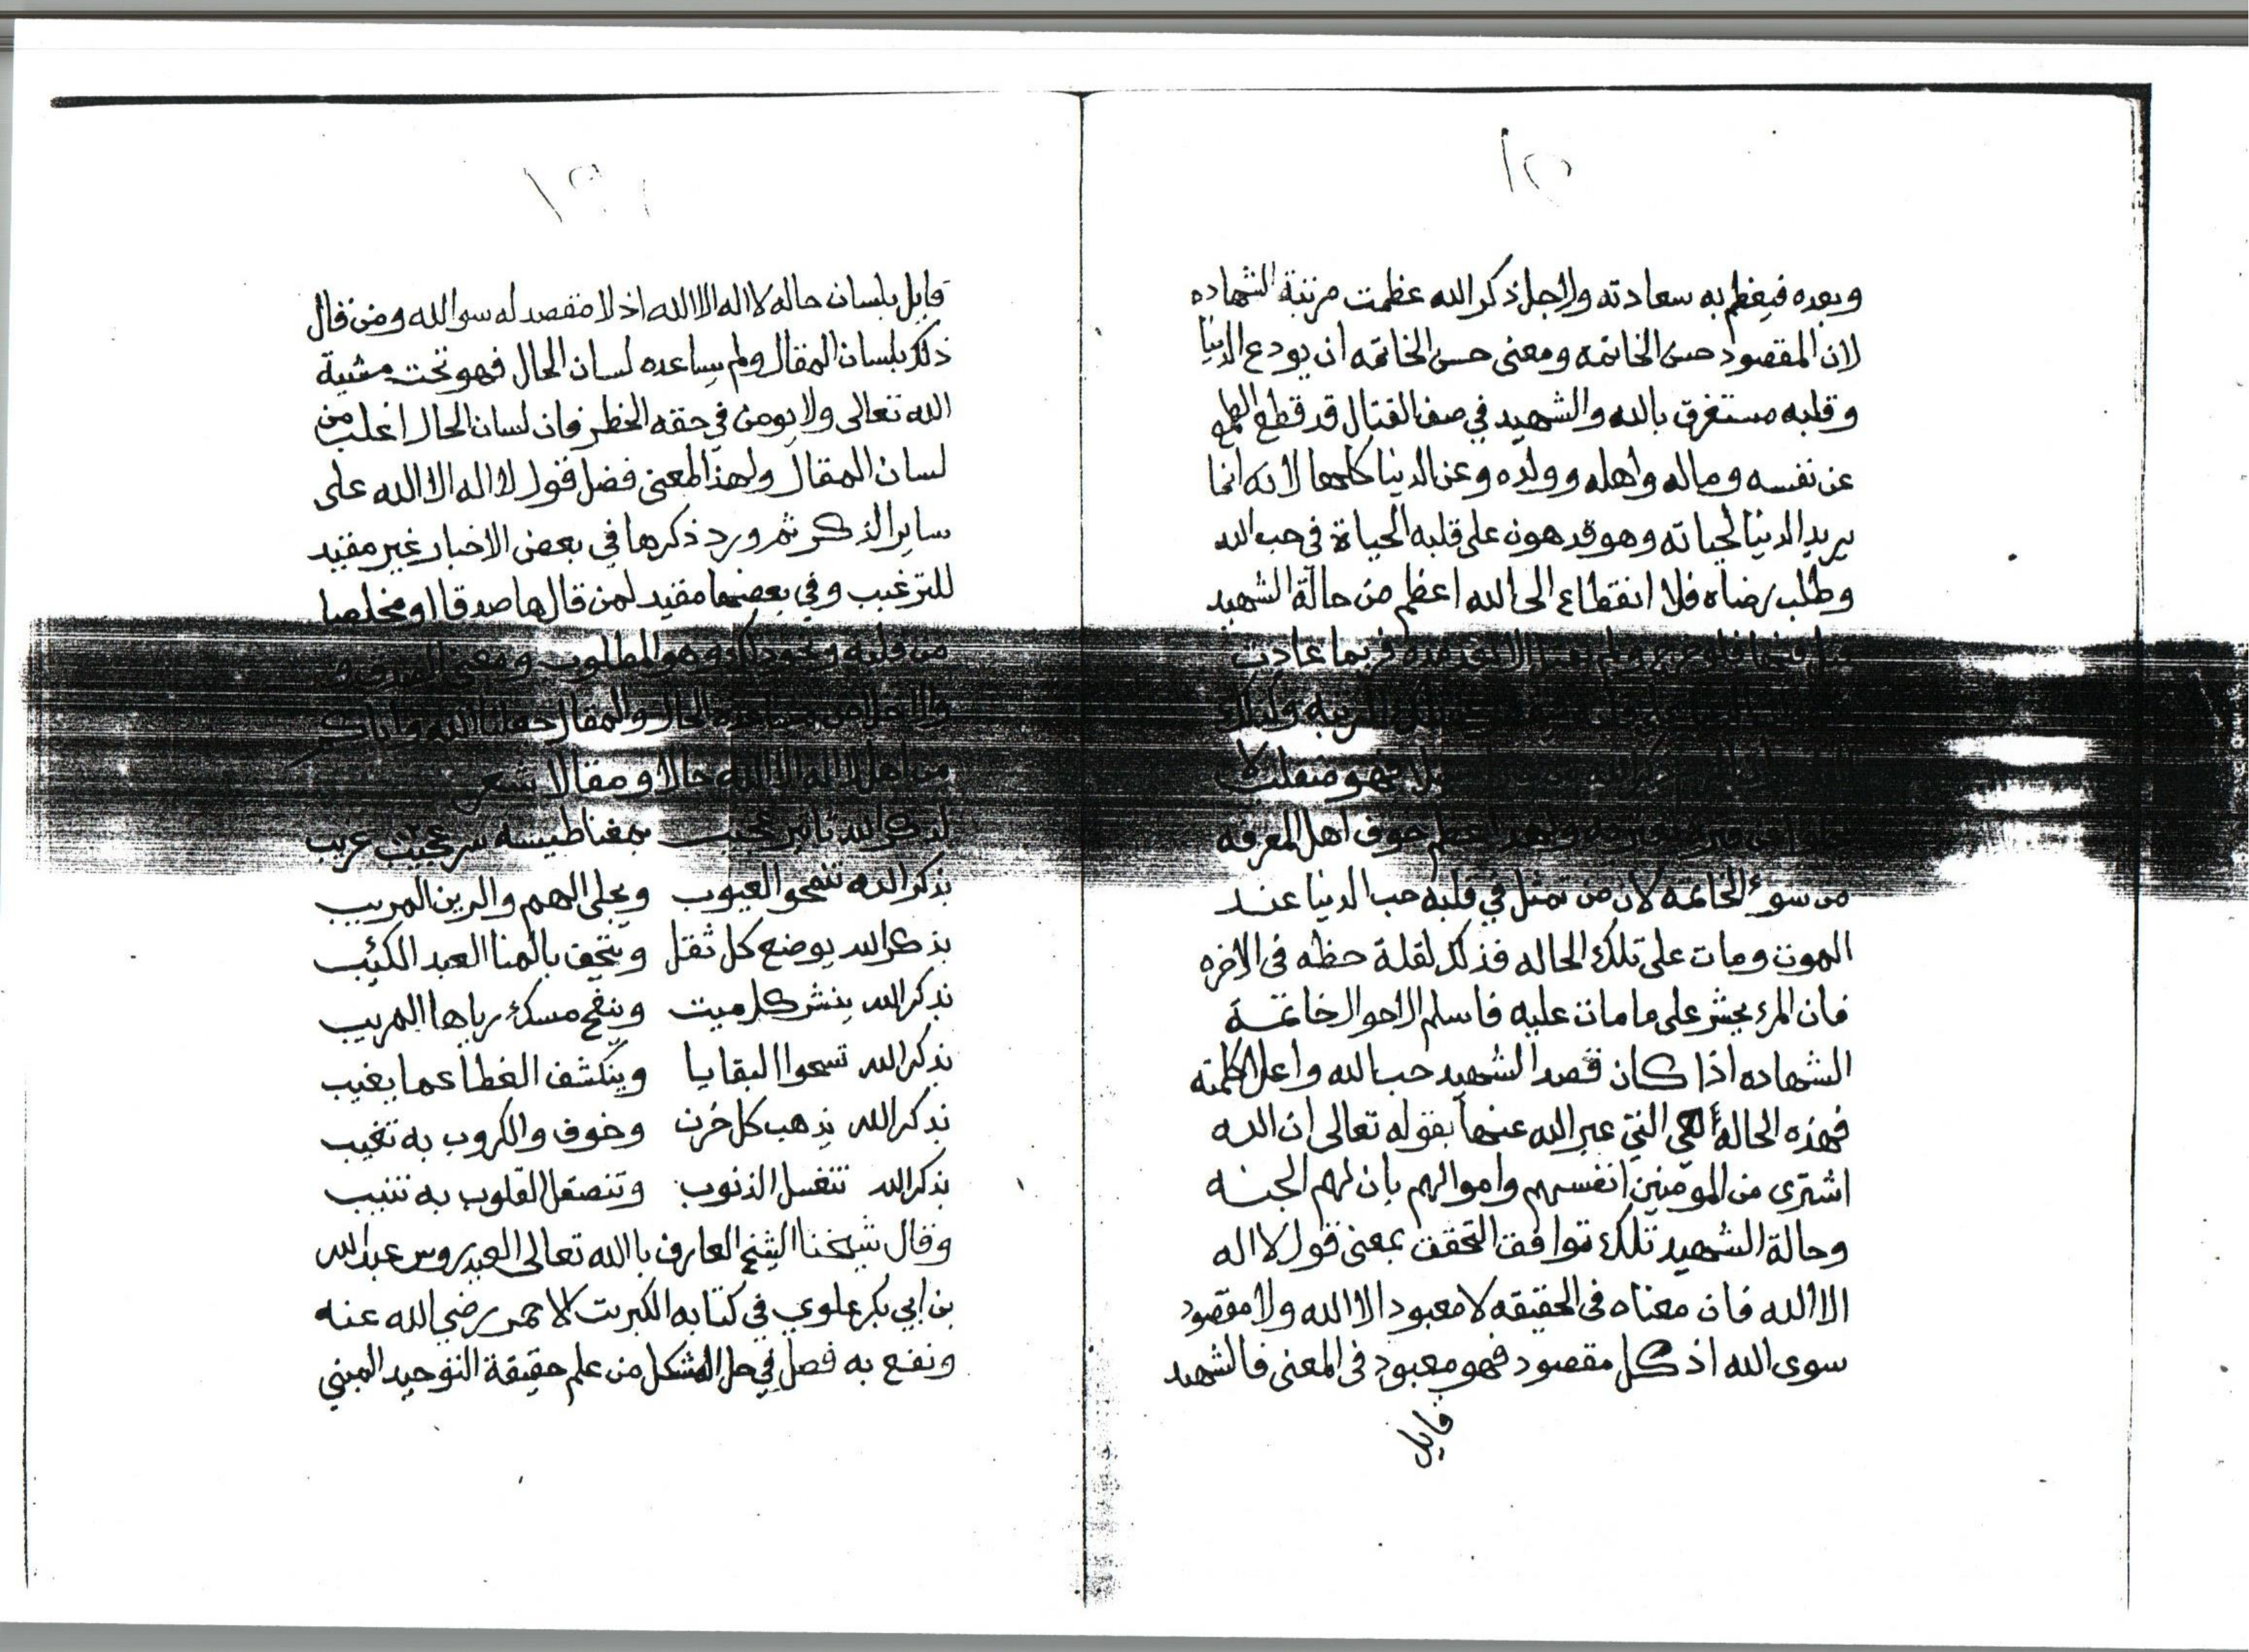 وبعده فيعظم به سعادته ولاجل ذكر الله عظمت مرتبة الشهاده
لان المقصود حسن الخاتمه ومعنى حسن الخاتمه ان يودع الدنيا
وقلبه مستغرق بالله والشهيد في صف القتال قد قطع الطمع
عن نفسه وماله واهله وولده وعن الدنيا كلها لانه انما
يريد الدنيا لحياته وهو قد هون على قلبه الحياة في حب الله
وطلب رضاه فلا انقطاع الى الله اعظم من حالة الشهيد
فربما عادت
ولذلك
فهو منقلب لا
اعظم خوف اهل المعرفه
من سوء الخاتمه لان من تمثل في قلبه حب الدنيا عند
الموت ومات على تلك الحاله فذلك لقلة حظه في الاخره
فان المرء يحشر على ما مات عليه فاسلم الاحوال خاتمة
الشهاده اذا كان قصد الشهيد حب الله واعلا كلمته
فهذه الحالة هي التي عبر الله عنها بقوله تعالى ان الله
اشترى من المومنين انفسهم واموالهم بان لهم الجنه
وحالة الشهيد تلك توافق التحقق بمعنى قول لا اله
الا الله فان معناه في الحقيقه لا معبود الا الله ولا مقصود
سوى الله اذ كل مقصود فهو معبود في المعنى فالشهيد
قايل
قايل بلسان حاله لا اله الا الله اذ لا مقصد له سوا الله ومن قال
ذلك بلسان المقال ولم يساعده لسان الحال فهو تحت مشية
الله تعالى ولا يومن في حقه الخطر فان لسان الحال اغلب من
لسان المقال ولهذا المعنى فضل قول لا اله الا الله على
ساير الذكر ثم ورد ذكرها في بعض الاخبار غير مقيد
للترغيب وفي بعضها مقيد لمن قالها صدقا او مخلصا
من قلبه ونحو ذلك وهو المطلوب ومعنى الصدق و
والاخلاص مساعدة الحال والمقال جعلنا الله واياكم
من اهل لا اله الا الله حالا ومقالا شعر
لذكر الله تاثير عجيب بمغناطيسه سر عجيب غريب
بذكر الله تنمحو العيوب ويجلى الهم والرين المريب
بذكر الله يوضع كل ثقل بالمنا العبد الكئب
بذكر الله ينشر كل ميت وينفح مسك رياها
بذكر الله تسحوا البقايا وينكشف الغطا عما يغيب
بذكر الله يذهب كل حزن وخوف والكروب به تغيب
بذكر الله تنغسل الذنوب وتنصقل القلوب به تنيب
وقال شيخنا الشيخ العارف بالله تعالى العيدروس عبد الله
بن ابي بكر علوي في كتابه الكبريت الاحمر رضي الله عنه
ونفع به فصل في حل المشكل من علم حقيقة التوحيد المبني